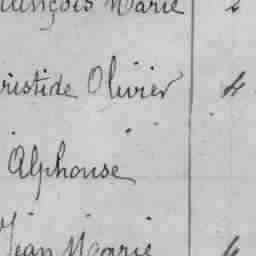 ançois Marie 2
ristide Olivier 4
Alphonse
Jean Marie 4